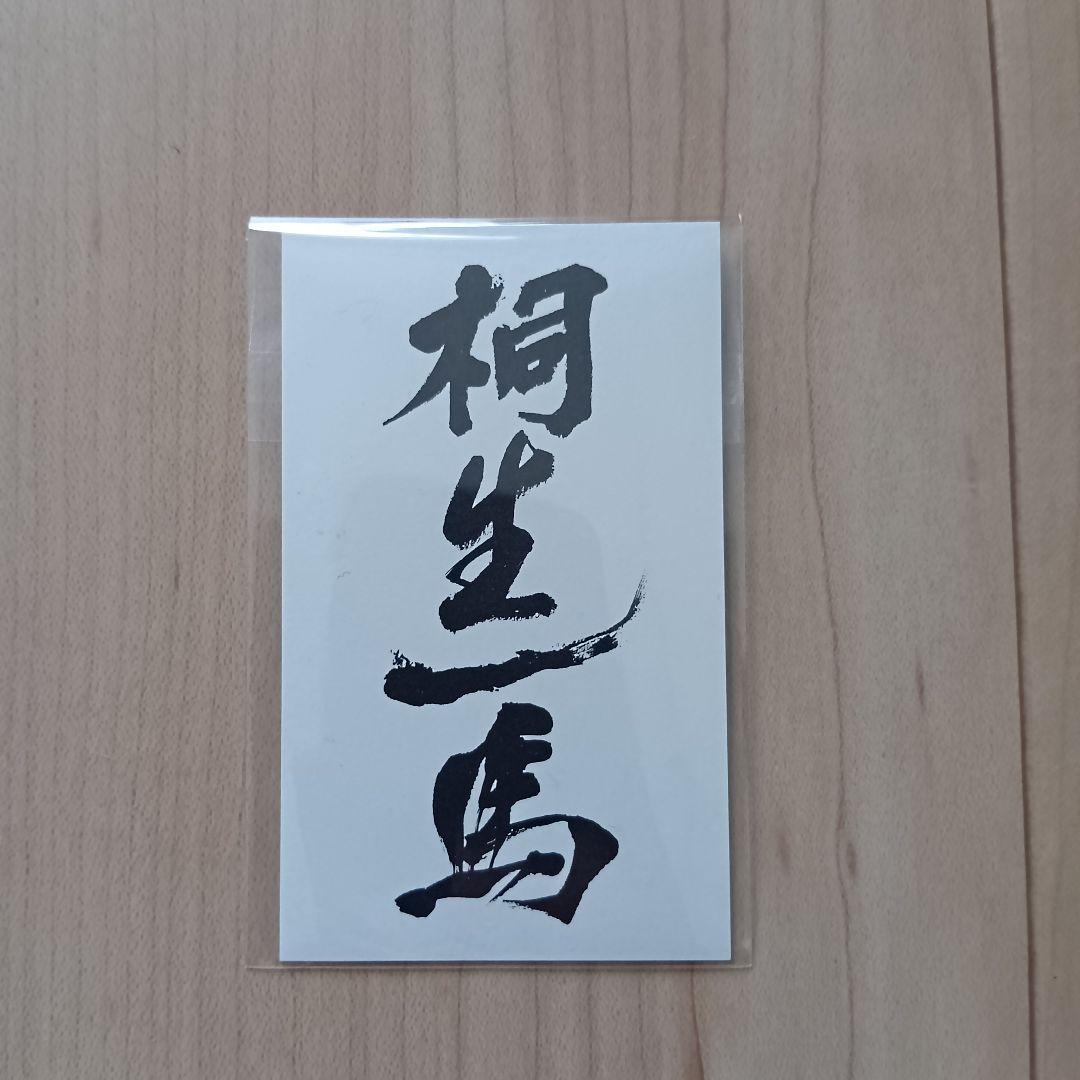 桐生一馬